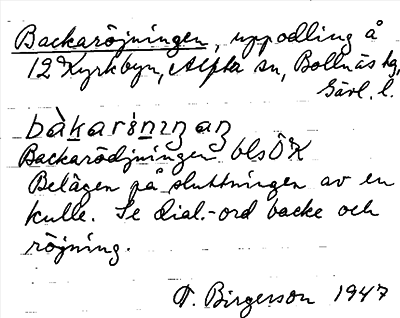 Backaröjningen, uppodling å
12 Kyrkbyn, Alfta sn, Bollnäs tg,
Gävl. l.
bàkarönıŋaŋ
Backarödjningen blsÖK
Belägen på sluttningen av en
kulle. Se dial.-ord backe och
röjning.
T. Birgerson 1947